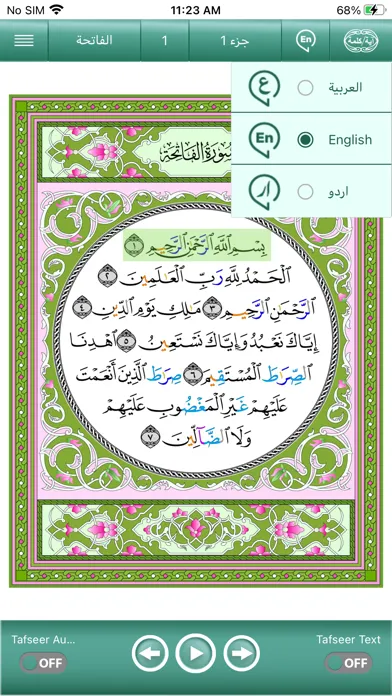 No SIM 11:23 AM 68%
الفاتحة 1 جزء 1 En آية/كلمة
ع العربية
En English
ار اردو
سورة الفاتحة
بِسْمِ ٱللَّهِ ٱلرَّحْمَٰنِ ٱلرَّحِيمِ ١
ٱلْحَمْدُ لِلَّهِ رَبِّ ٱلْعَٰلَمِينَ ٢
ٱلرَّحْمَٰنِ ٱلرَّحِيمِ ٣ مَٰلِكِ يَوْمِ ٱلدِّينِ ٤
إِيَّاكَ نَعْبُدُ وَإِيَّاكَ نَسْتَعِينُ ٥ ٱهْدِنَا
ٱلصِّرَٰطَ ٱلْمُسْتَقِيمَ ٦ صِرَٰطَ ٱلَّذِينَ أَنْعَمْتَ
عَلَيْهِمْ غَيْرِ ٱلْمَغْضُوبِ عَلَيْهِمْ
وَلَا ٱلضَّآلِّينَ ٧
Tafseer Au... Tafseer Text
OFF OFF